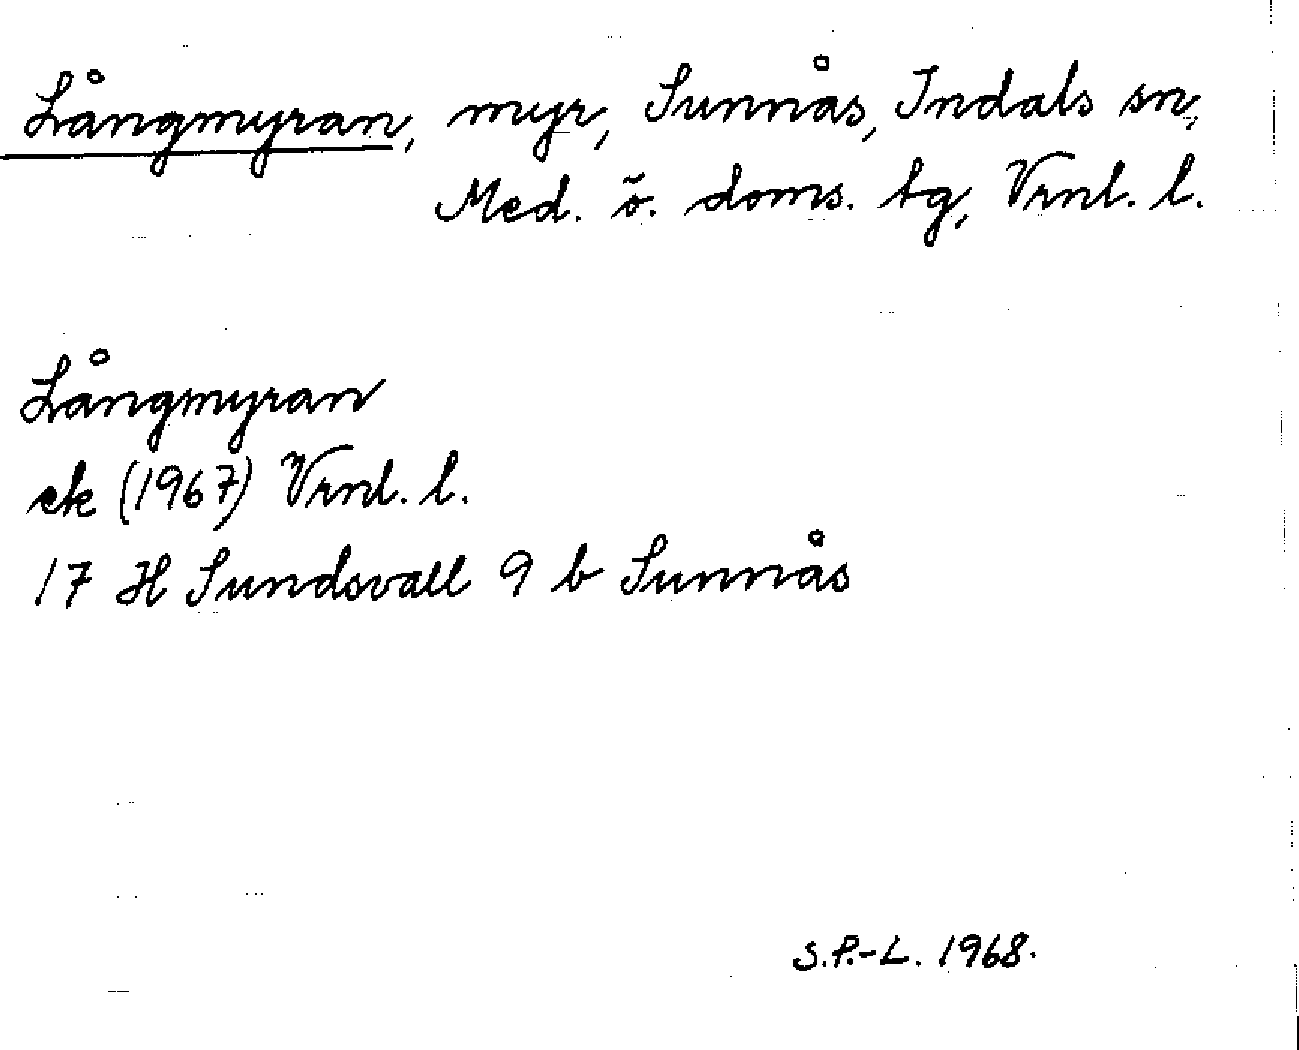 Långmyran, myr, Sunnås, Indals sn,
Med. ö. doms. tg, Vrnl. l.
Långmyran
ek (1967) Vrnl. l.
17 H Sundsvall 9 b Sunnås
S.P.-L. 1968.